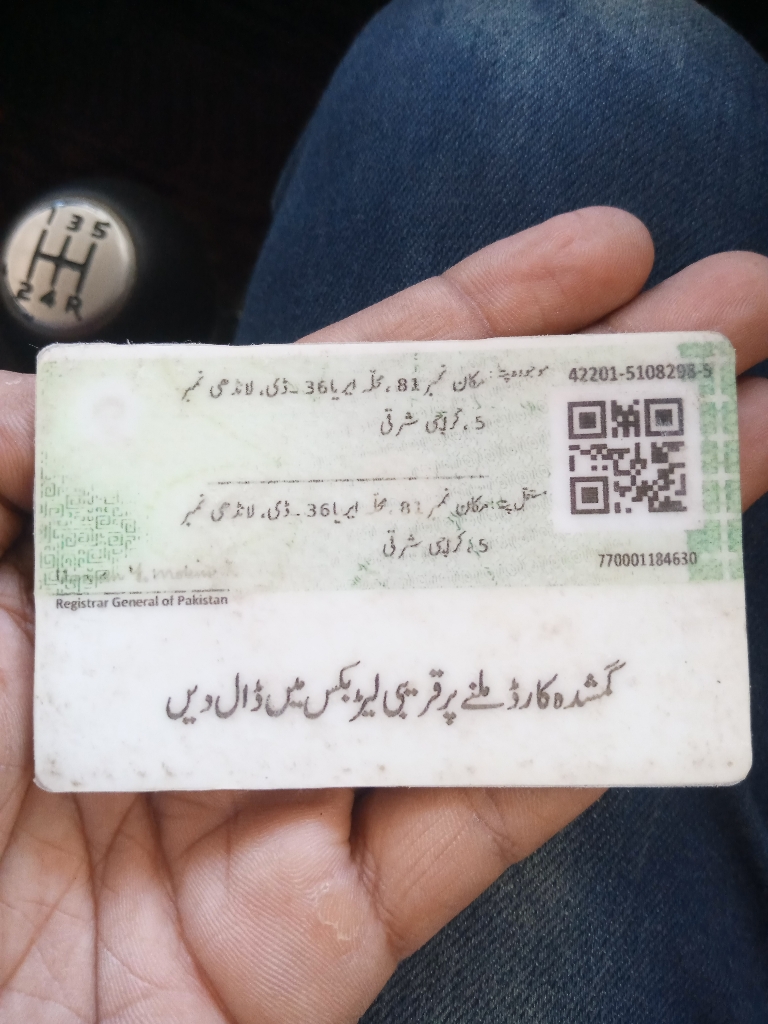 موجودہ پتہ: مکان نمبر 81، محلہ ایریا 36۔ڈی، لانڈھی نمبر
5، کراچی شرقی
42201-5108298-5
مستقل پتہ: مکان نمبر 81، محلہ ایریا 36۔ڈی، لانڈھی نمبر
5، کراچی شرقی
770001184630
Registrar General of Pakistan
گمشدہ کارڈ ملنے پر قریبی لیٹر بکس میں ڈال دیں
1 3 5
2 4 R